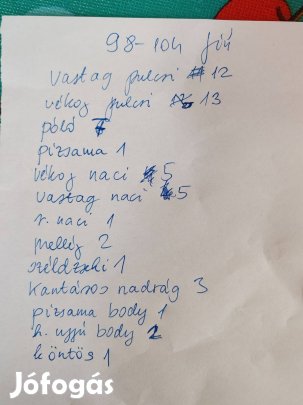 98-104 fiú
vastag pulcsi 12
vékoj pulcsi 13
póló 7
pizsama 1
vékoj naci 5
vastag naci 5
r. naci 1
mellėj 2
széldzseki 1
kantáros nadrág 3
pizsama body 1
h. ujjú body 2
köntös 1
Jófogás